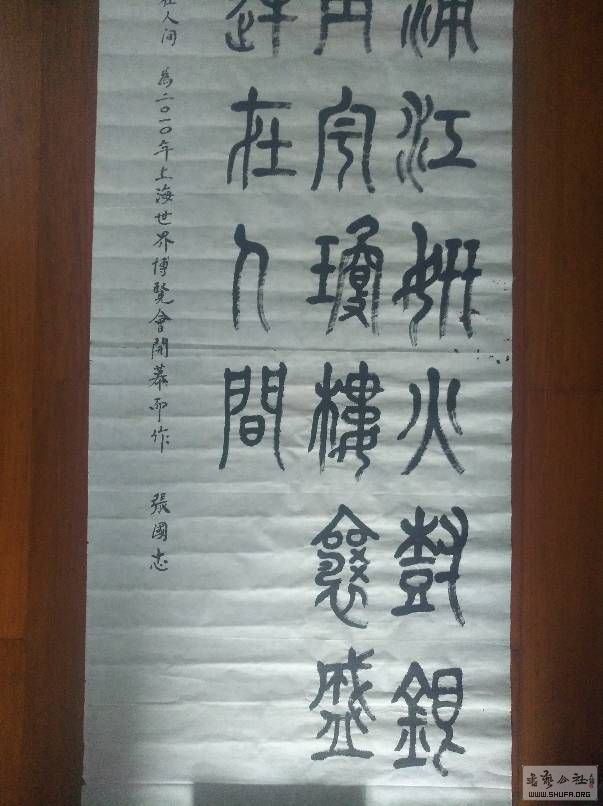 浦江妍火樹銀
宇瓊樓盛
在人間
在人间 為二〇一〇年上海世界博覽會開幕而作 張國志
书艺公社
WWW.SHUFA.ORG